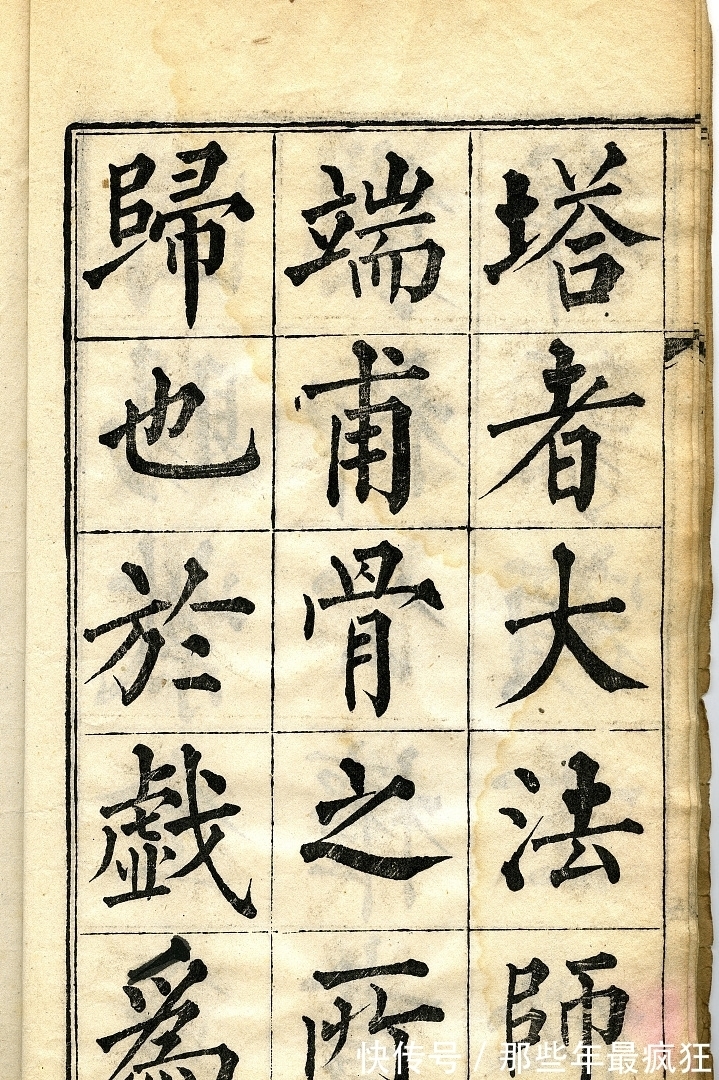 塔者大法師
端甫骨之所
歸也於戯為
快传号 / 那些年最疯狂